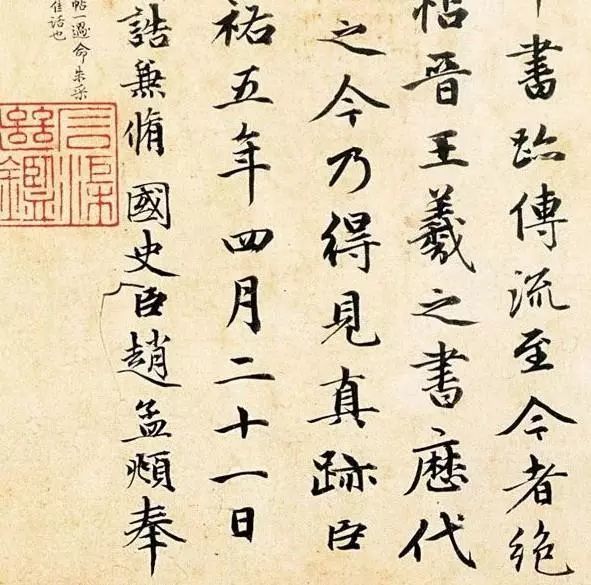 書跡傳流至今者絕
帖晉王羲之書歷代
之今乃得見真跡臣
祐五年四月二十一日
誥兼脩國史臣趙孟頫奉
帖一過命朱采
佳話也
石渠
繼鑑